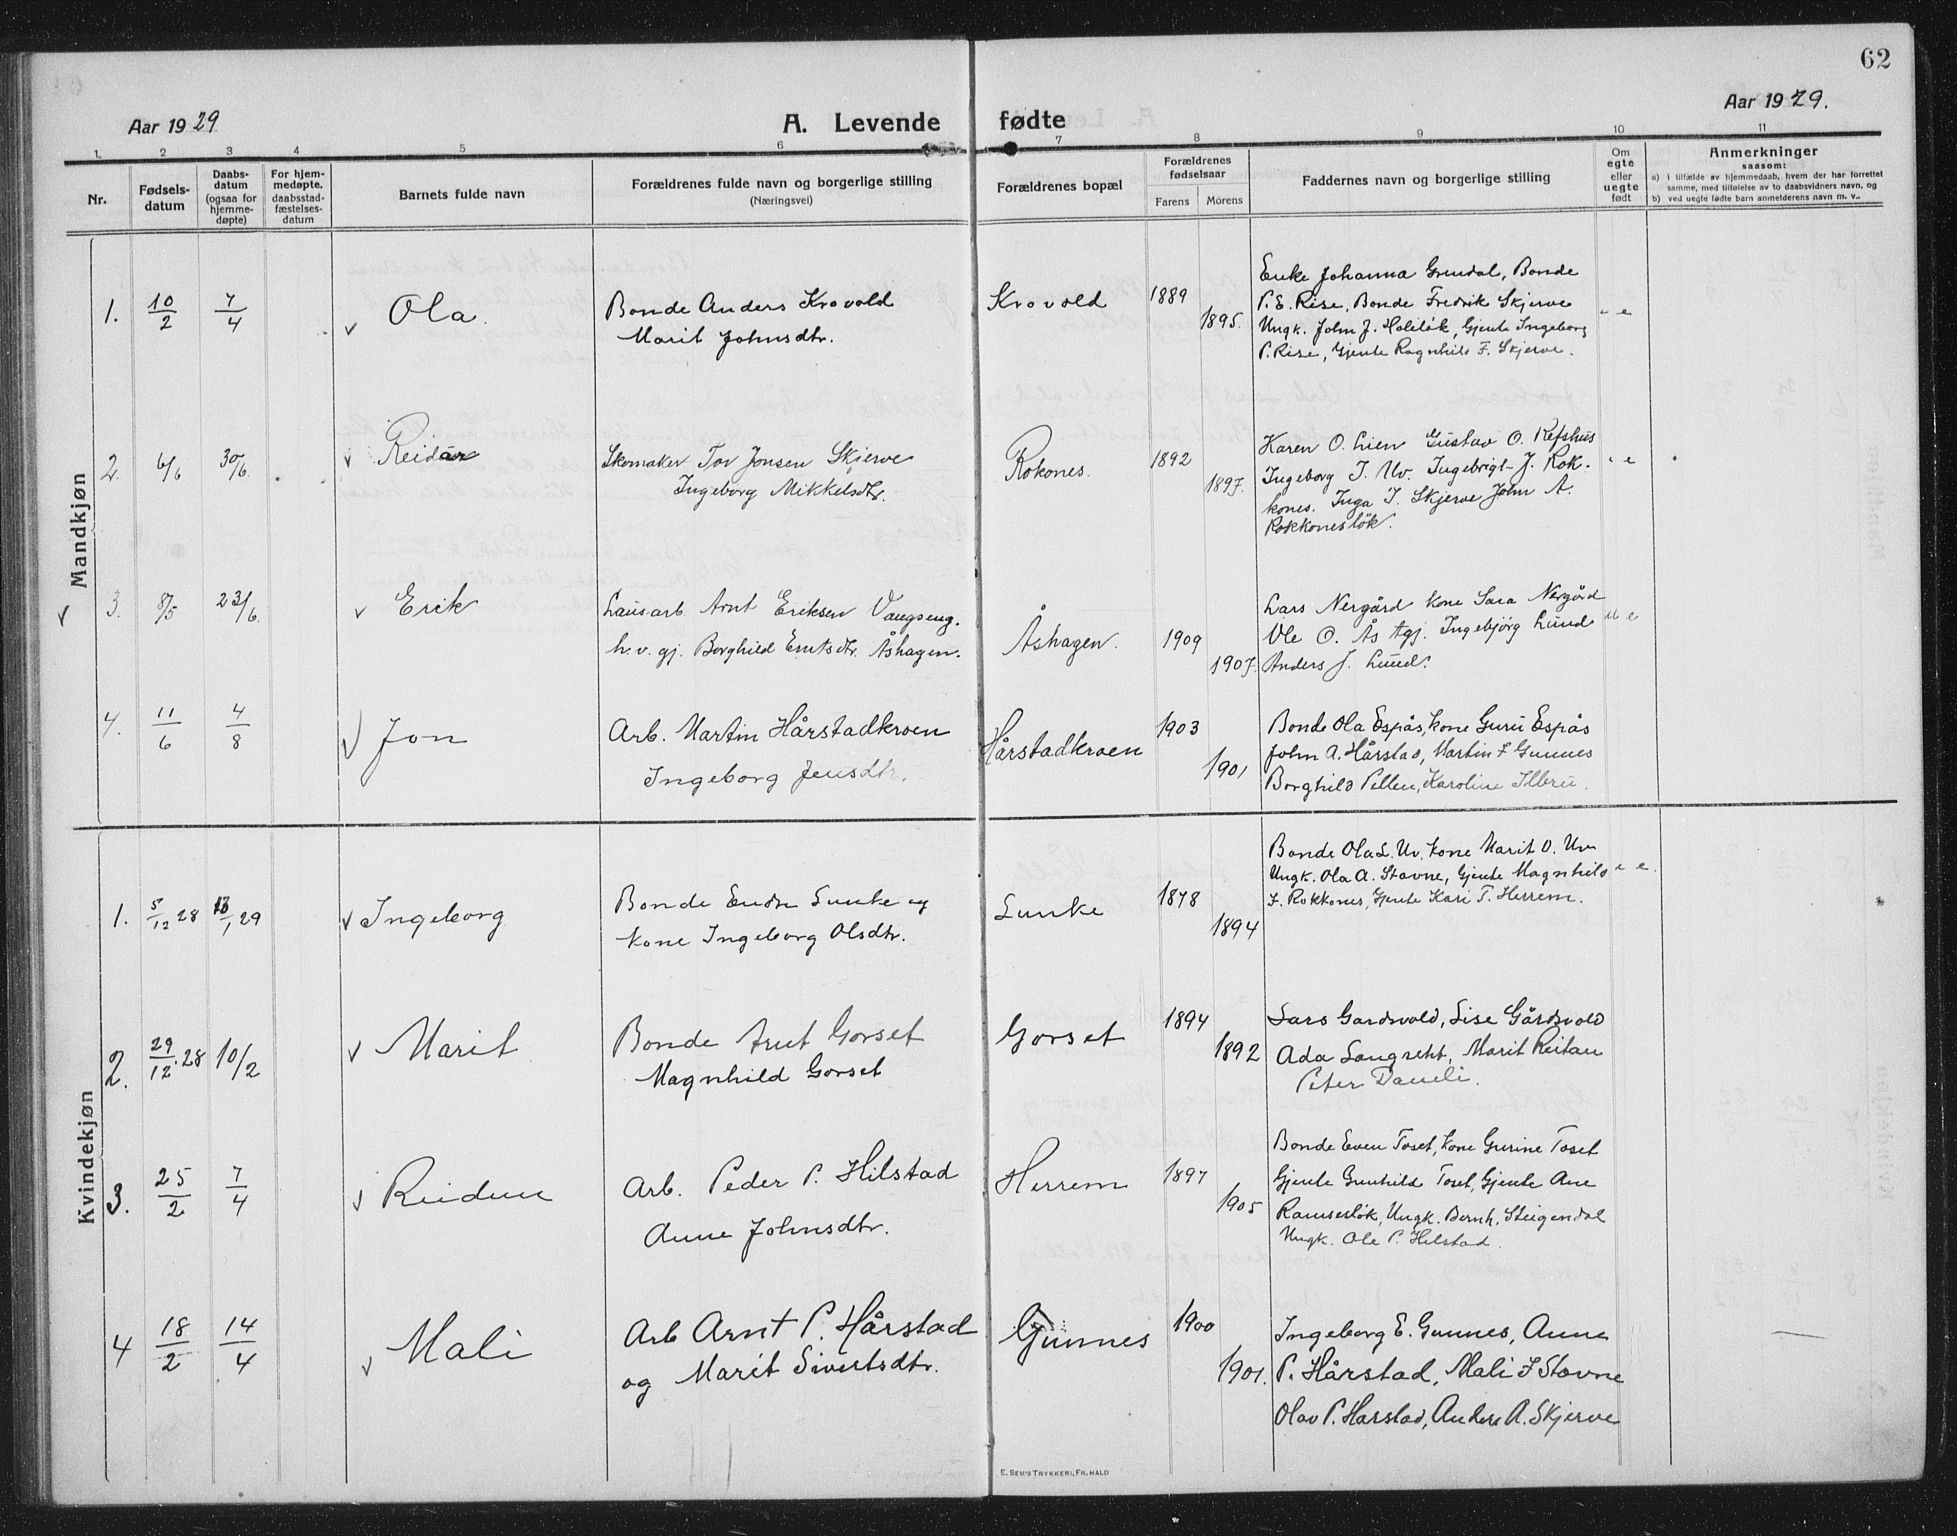 62
Aar 1929
A. Levende fødte
Aar 1929.
1. 2 3 4 5 6 7 8 9 10 11
Nr.
Fødsels-
datum
Daabs-
datum
(ogsaa for
hjemme-
døpte)
For hjem-
medøpte,
daabsstad-
fæstelses-
datum
Barnets fulde navn
Forældrenes fulde navn og borgerlige stilling
(Næringsvei)
Forældrenes bopæl
Forældrenes
fødselsaar
Farens Mórens
Faddernes navn og borgerlige stilling
Om
egte
eller
uegte
født
Anmerkninger
saasom:
a) i tilfælde av hjemmedaab, hvem der har forrettet
samme, med tilføielse av to daabsvidners navn, og
b) ved uegte fødte barn anmelderens navn m. v.
Mandkjøn
1. 10/2 7/4 Ola.
Bonde Anders Krovold
Marit Johnsdtr.
Krovold
1889
1895.
Enke Johanna Grindal, Bonde
P. E. Rise, Bonde Fredrik Skjerve
Ungk. John J. Holiløk, Gjente Ingeborg
P. Rise, Gjente Ragnhild F. Skjerve.
" e
2. 6/6 30/6. Reidar
Skomaker Tor Jonsen Skjerve
Ingeborg Mikkelsdtr.
Rokones.
1892
1897.
Karen O. Lien Gustav O. Refshus
Ingeborg J. Uv. Ingebrigt J. Rok-
kones. Inga T. Skjerve John A.
Rokkonesløk.
" e
3. 8/5 23/6. Erik
Lausarb. Arnt Eriksen Vangseng.
h. v. gj. Borghild Erntsdtr. Åshagen.
Åshagen.
1909
1907.
Lars Nergård kone Sara Nergård
Ole O. Ås gj. Ingebjørg Lund
Anders J. Lund.
u e
4. 11/6 4/8 Jon
Arb. Martin Hårstadkroen
Ingeborg Jensdtr.
Hårstadkroen
1903
1901
Bonde Ola Espås, kone Guru Espås
John A. Hårstad, Martin F Gunnes
Borghild Pellen, Karoline Ilbru.
Kvindekjøn
1. 5/12 28 13/1 29 Ingeborg
Bonde Endre Lunke og
kone Ingeborg Olsdtr.
Lunke
1878
1894
Bonde Ola L. Uv, kone Marit O. Uv
Ungk. Ola A. Stavne, Gjente Magnhild
F. Rokkones, Gjente Kari T. Herrem.
" e.
2. 29/12.28 10/2 Marit
Bonde Arnt Gorset
Magnhild Gorset
Gorset
1894
1892
Lars Gardsvold, Lise Gårdsvold
Ada Langseth, Marit Reitan
Peter Daueli.
3. 25/2 7/4 Reidun
Arb. Peder P. Hilstad
Anne Johnsdtr.
Herrem
1897
1905
Bonde Even Toset, kone Gurine Toset
Gjente Gunhild Toset, Gjente Ane
Ramsesløk, Ungk. Bernh. Steigendal
Ungk. Ole P. Hilstad.
4 18/2 14/4 Mali
Arb Arnt P. Hårstad
og Marit Sivertsdtr.
Gunnes
1900
1901.
Ingeborg E. Gunnes, Anne
P. Hårstad, Mali F Stavne
Olav P. Harstad, Anders A. Skjerve
E. Sem's Trykkeri, Fr.hald